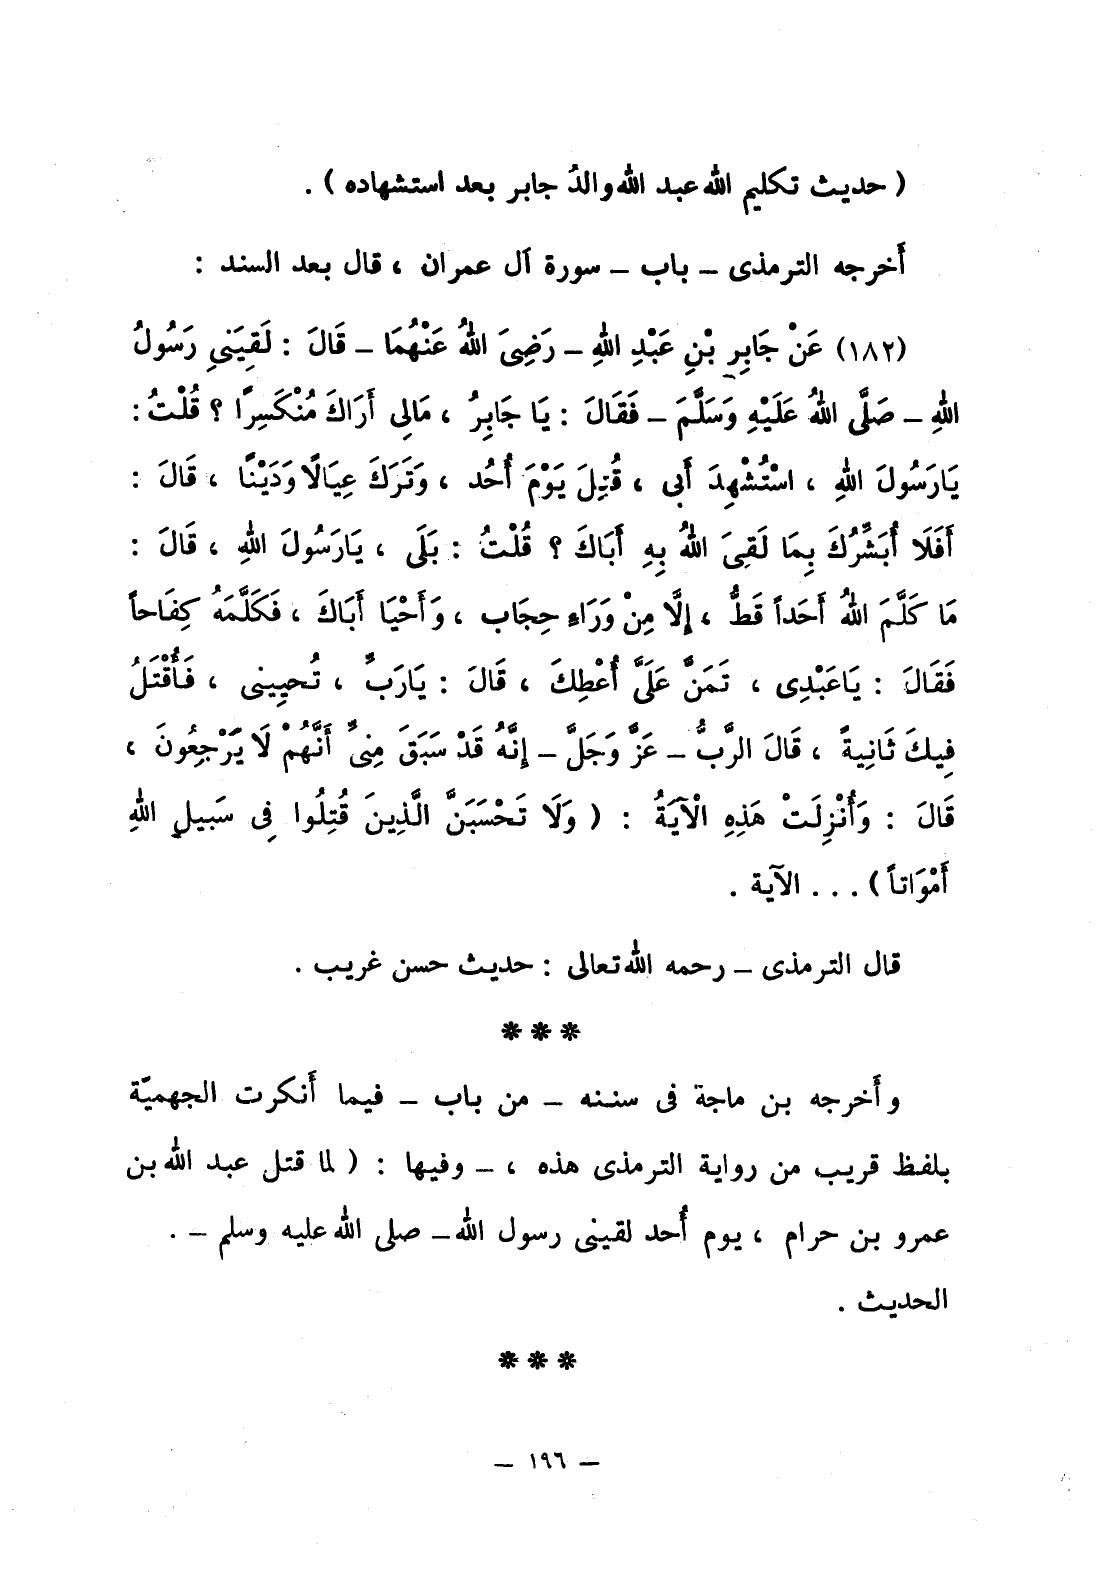 ( حديث تكليم الله عبد الله والدُ جابر بعد استشهاده ) .
أَخرجه الترمذى ــ باب ــ سورة آل عمران ، قال بعد السند :
(١٨٢) عَنْ جَابِرِ بْنِ عَبْدِ اللهِ ــ رَضِىَ اللهُ عَنْهُمَا ــ قَالَ : لَقِيَنِى رَسُولُ
اللهِ ــ صَلَّى اللهُ عَلَيْهِ وَسَلَّمَ ــ فَقَالَ : يَا جَابِرُ ، مَالِى أَرَاكَ مُنْكَسِرًا ؟ قُلْتُ :
يَارَسُولَ اللهِ ، اسْتُشْهِدَ أَبى ، قُتِلَ يَوْمَ أُحُد ، وَتَرَكَ عِيَالًا وَدَيْنًا ، قَالَ :
أَفَلَا أُبَشِّرُكَ بِمَا لَقِىَ اللهُ بِهِ أَبَاكَ ؟ قُلْتُ : بَلَى ، يَارَسُولَ اللهِ ، قَالَ :
مَا كَلَّمَ اللهُ أَحَداً قَطُّ ، إِلَّا مِنْ وَرَاءِ حِجَاب ، وَأَحْيَا أَبَاكَ ، فَكَلَّمَهُ كِفَاحاً
فَقَالَ : يَاعَبْدِى ، تَمَنَّ عَلَىَّ أُعْطِكَ ، قَالَ : يَارَبِّ ، تُحيِينِى ، فَأُقْتَلُ
فِيكَ ثَانِيةً ، قَالَ الرَّبُّ ــ عَزَّ وَجَلَّ ــ إِنَّهُ قَدْ سَبَقَ مِنِّى أَنَّهُمْ لَا يَرْجِعُونَ ،
قَالَ : وَأُنْزِلَتْ هَذِهِ الْآيَةُ : ( وَلَا تَحْسَبَنَّ الَّذِينَ قُتِلُوا فِى سَبِيلِ اللهِ
أَمْوَاتاً ) . . . الآية .
قال الترمذى ــ رحمه الله تعالى : حديث حسن غريب .
***
وأَخرجه بن ماجة فى سننه ــ من باب ــ فيما أَنكرت الجهميّة
بلفظ قريب من رواية الترمذى هذه ، ــ وفيها : ( لما قتل عبد الله بن
عمرو بن حرام ، يوم أُحد لقينى رسول الله ــ صلى الله عليه وسلم ــ .
الحديث .
***
ــ ١٩٦ ــ